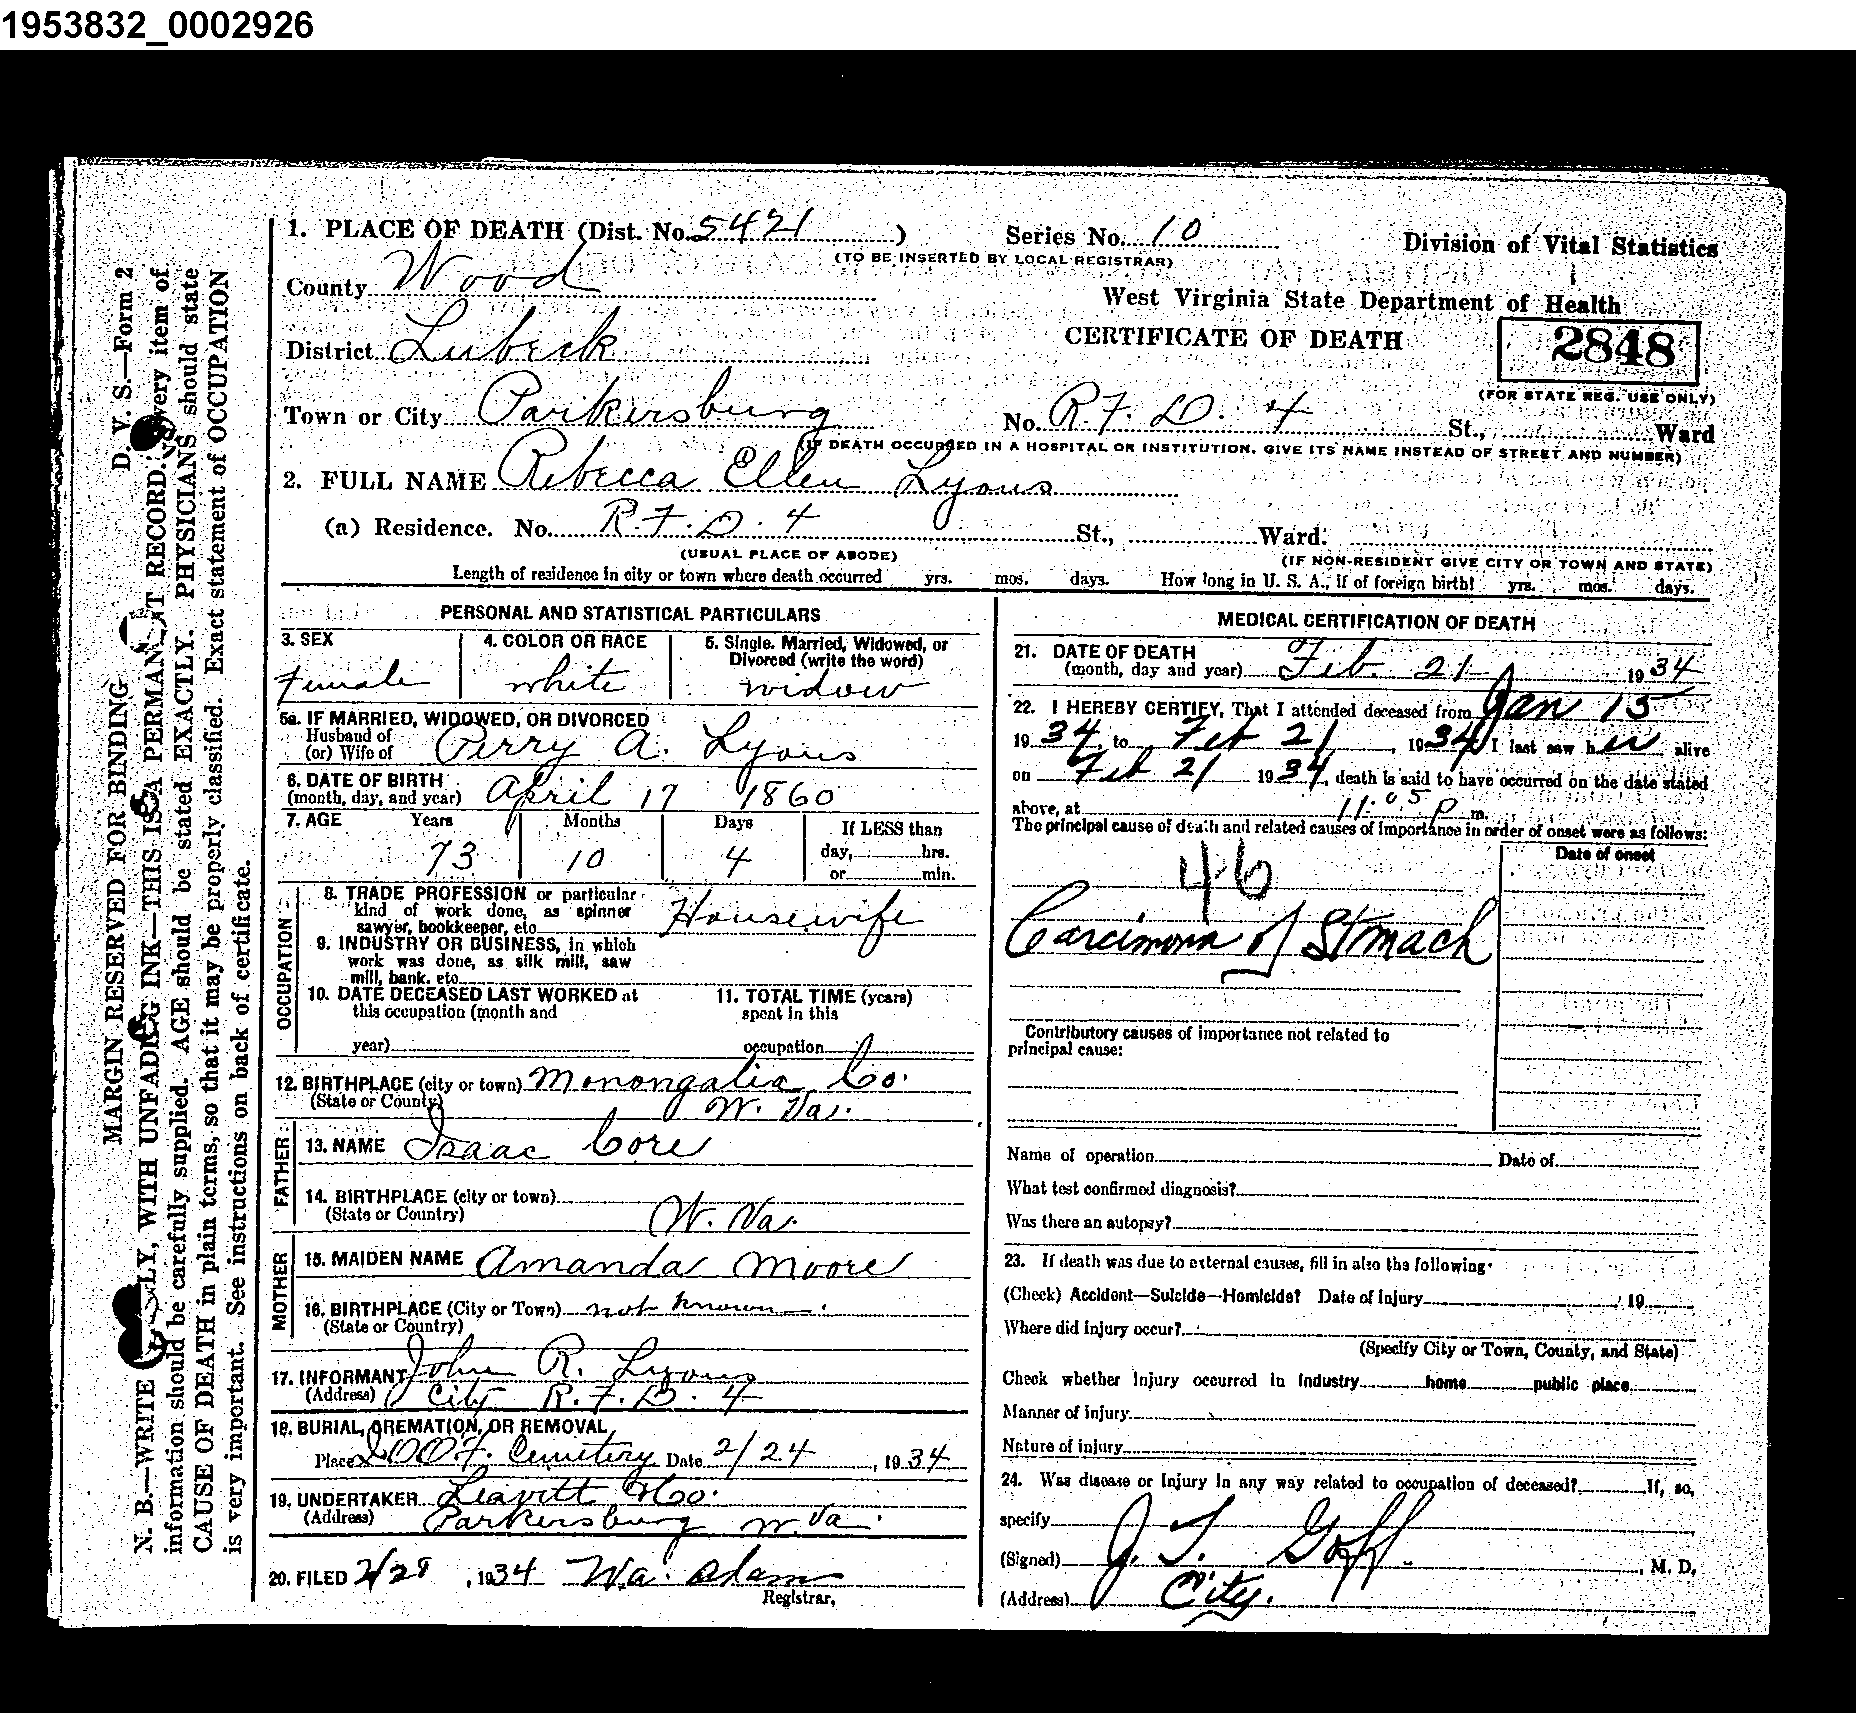 1953832_0002926
1. PLACE OF DEATH (Dist. No. 5421 )
Series No. 10
(TO BE INSERTED BY LOCAL REGISTRAR)
Division of Vital Statistics
County Wood
West Virginia State Department of Health
District Lubeck
CERTIFICATE OF DEATH
2848
(FOR STATE REG. USE ONLY)
Town or City Parkersburg
No. R.F.D. 4 St., Ward
(IF DEATH OCCURRED IN A HOSPITAL OR INSTITUTION, GIVE ITS NAME INSTEAD OF STREET AND NUMBER)
2. FULL NAME Rebecca Ellen Lyons
(a) Residence. No. R.F.D. 4 St., Ward.
(USUAL PLACE OF ABODE)
(IF NON-RESIDENT GIVE CITY OR TOWN AND STATE)
Length of residence in city or town where death occurred yrs. mos. days. How long in U. S. A., if of foreign birth? yrs. mos. days.
PERSONAL AND STATISTICAL PARTICULARS
3. SEX
Female
4. COLOR OR RACE
white
5. Single. Married, Widowed, or
Divorced (write the word)
widow
5a. IF MARRIED, WIDOWED, OR DIVORCED
Husband of
(or) Wife of Perry A. Lyons
6. DATE OF BIRTH
(month, day, and year) April 17 1860
7. AGE Years Months Days If LESS than
73 10 4 day, hrs.
or min.
OCCUPATION
8. TRADE PROFESSION or particular
kind of work done, as spinner
sawyer, bookkeeper, etc Housewife
9. INDUSTRY OR BUSINESS, in which
work was done, as silk mill, saw
mill, bank. etc.
10. DATE DECEASED LAST WORKED at
this occupation (month and
year)
11. TOTAL TIME (years)
spent in this
occupation
12. BIRTHPLACE (city or town) Monongalia Co.
(State or County) W. Va.
FATHER
13. NAME Isaac Core
14. BIRTHPLACE (city or town)
(State or Country) W. Va.
MOTHER
15. MAIDEN NAME Amanda Moore
16. BIRTHPLACE (City or Town) not known.
(State or Country)
17. INFORMANT John R. Lyons
(Address) City R.F.D. 4
18. BURIAL, CREMATION, OR REMOVAL
Place IOOF. Cemetery Date 2/24, 1934
19. UNDERTAKER Leavitt & Co.
(Address) Parkersburg W. Va.
20. FILED 2/28, 1934 W.a. Adam
Registrar.
MEDICAL CERTIFICATION OF DEATH
21. DATE OF DEATH
(month, day and year) Feb. 21 1934
22. I HEREBY CERTIFY, That I attended deceased from Jan 15
1934, to Feb 21, 1934 I last saw her alive
on Feb 21 1934, death is said to have occurred on the date stated
above, at 11:05 P m.
The principal cause of death and related causes of importance in order of onset were as follows:
Date of onset
46
Carcinoma of Stomach
Contributory causes of importance not related to
principal cause:
Name of operation Date of
What test confirmed diagnosis?
Was there an autopsy?
23. If death was due to external causes, fill in also the following:
(Check) Accident—Suicide—Homicide? Date of injury , 19
Where did injury occur?
(Specify City or Town, County, and State)
Check whether injury occurred in Industry home public place
Manner of injury
Nature of injury
24. Was disease or injury in any way related to occupation of deceased? If, so,
specify
(Signed) J. T. Goff, M. D.
(Address) City.
D. V. S.—Form 2
MARGIN RESERVED FOR BINDING
N. B.—WRITE LY, WITH UNFADING INK—THIS IS A PERMANENT RECORD. Every item of
information should be carefully supplied. AGE should be stated EXACTLY. PHYSICIANS should state
CAUSE OF DEATH in plain terms, so that it may be properly classified. Exact statement of OCCUPATION
is very important. See instructions on back of certificate.